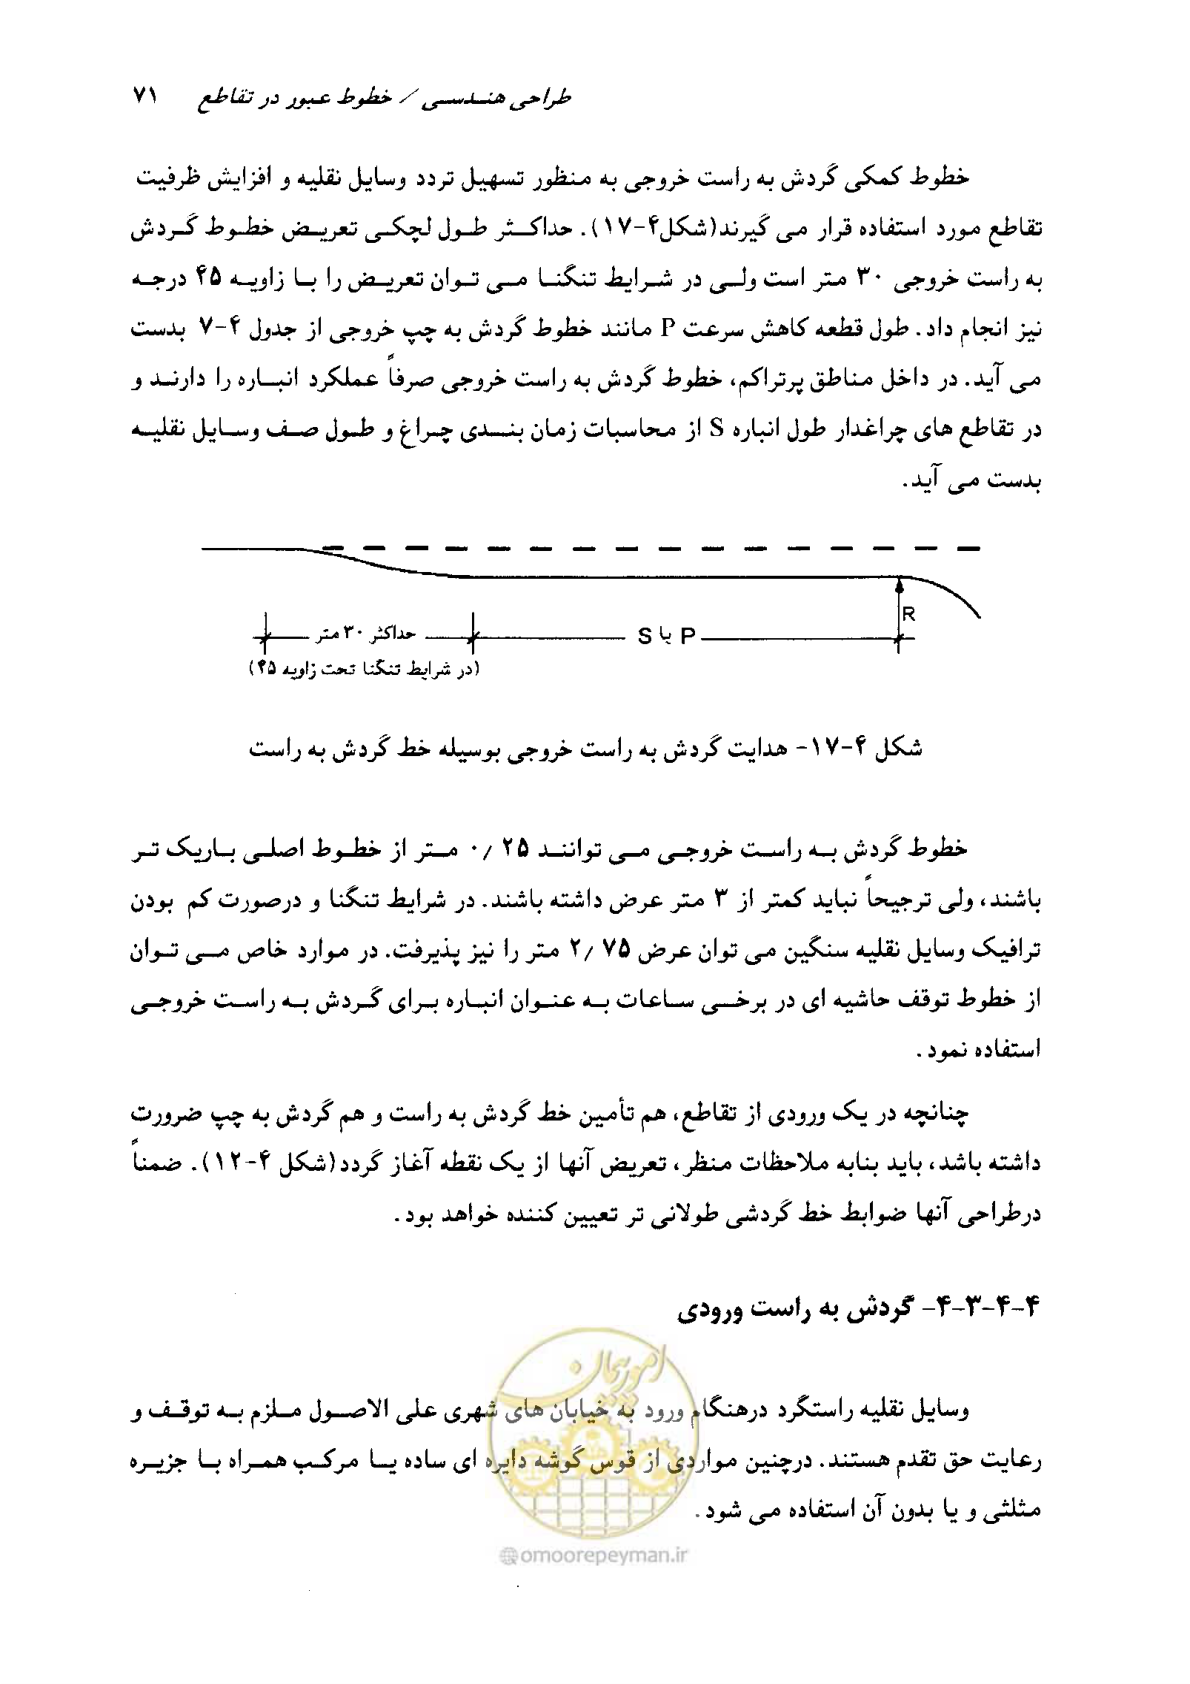 طراحی هندسی / خطوط عبور در تقاطع ۷۱
خطوط کمکی گردش به راست خروجی به منظور تسهیل تردد وسایل نقلیه و افزایش ظرفیت
تقاطع مورد استفاده قرار می گیرند(شکل۴-۱۷). حداکثر طول لچکی تعریض خطوط گردش
به راست خروجی ۳۰ متر است ولی در شرایط تنگنا می توان تعریض را با زاویه ۴۵ درجه
نیز انجام داد. طول قطعه کاهش سرعت P مانند خطوط گردش به چپ خروجی از جدول ۴-۷ بدست
می آید. در داخل مناطق پرتراکم، خطوط گردش به راست خروجی صرفاً عملکرد انباره را دارند و
در تقاطع های چراغدار طول انباره S از محاسبات زمان بندی چراغ و طول صف وسایل نقلیه
بدست می آید.
R
حداکثر ۳۰ متر
P یا S
(در شرایط تنگنا تحت زاویه ۴۵)
شکل ۴-۱۷- هدایت گردش به راست خروجی بوسیله خط گردش به راست
خطوط گردش به راست خروجی می توانند ۰/۲۵ متر از خطوط اصلی باریک تر
باشند، ولی ترجیحاً نباید کمتر از ۳ متر عرض داشته باشند. در شرایط تنگنا و درصورت کم بودن
ترافیک وسایل نقلیه سنگین می توان عرض ۲/۷۵ متر را نیز پذیرفت. در موارد خاص می توان
از خطوط توقف حاشیه ای در برخی ساعات به عنوان انباره برای گردش به راست خروجی
استفاده نمود.
چنانچه در یک ورودی از تقاطع، هم تأمین خط گردش به راست و هم گردش به چپ ضرورت
داشته باشد، باید بنابه ملاحظات منظر، تعریض آنها از یک نقطه آغاز گردد(شکل ۴-۱۲). ضمناً
درطراحی آنها ضوابط خط گردشی طولانی تر تعیین کننده خواهد بود.
۴-۴-۳-۴- گردش به راست ورودی
وسایل نقلیه راستگرد درهنگام ورود به خیابان های شهری علی الاصول ملزم به توقف و
رعایت حق تقدم هستند. درچنین مواردی از قوس گوشه دایره ای ساده یا مرکب همراه با جزیره
مثلثی و یا بدون آن استفاده می شود.
امور پیمان
@omoorepeyman.ir